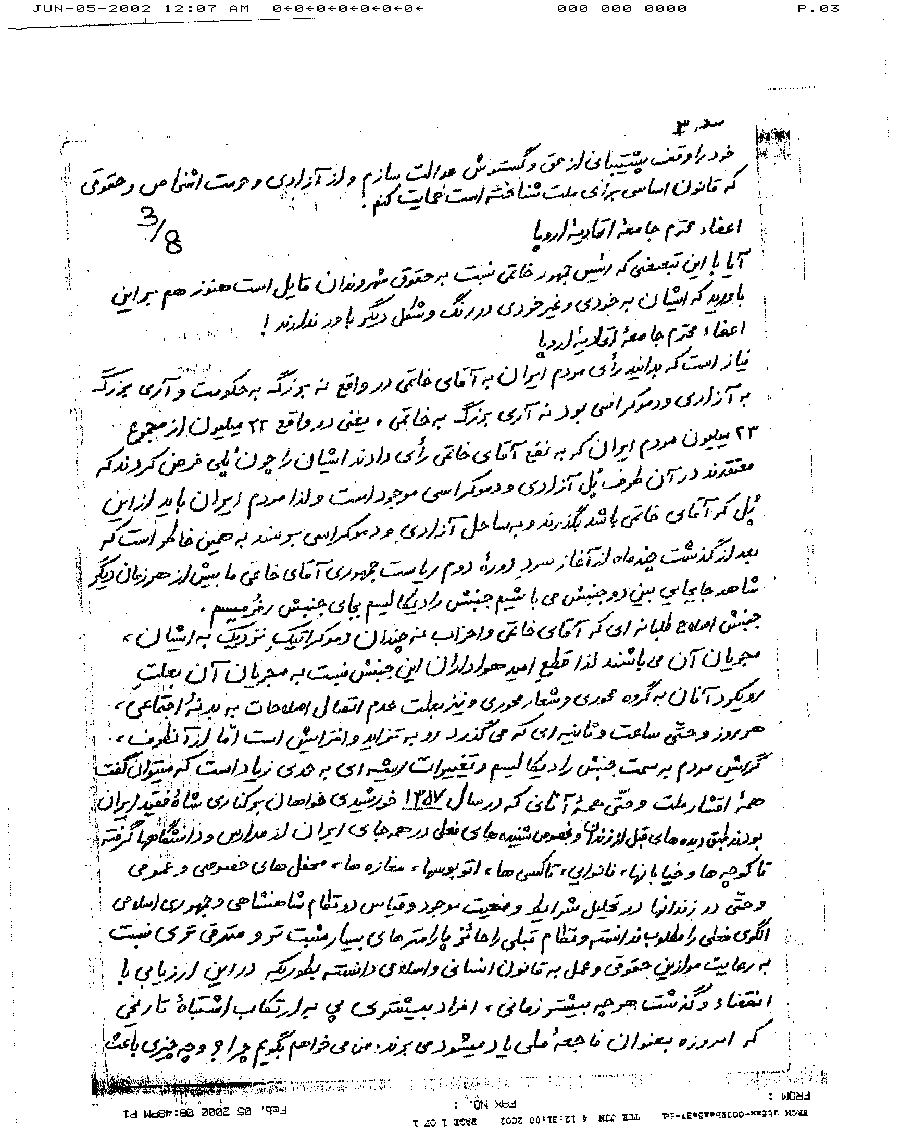 JUN-05-2002 12:07 AM 000 000 0000 P.03
خود را وقف پشتیبانی از حق و گسترش عدالت سازم و از آزادی و حرمت اشخاص و حقوقی
که قانون اساسی برای ملت شناخته است حمایت کنم!
3/8
اعضاء محترم جامعهٔ اتحادیهٔ اروپا
آیا با این تبعیضی که رئیس جمهور خاتمی نسبت به حقوق شهروندان قایل است هنوز هم بر این
باورید که ایشان به خودی و غیر خودی در رنگ و شکل دیگر باور ندارند!
اعضاء محترم جامعهٔ اتحادیهٔ اروپا
نیاز است که بدانید رأی مردم ایران به آقای خاتمی در واقع نه بزرگ به حکومت و آری بزرگ
به آزادی و دموکراسی بود نه آری بزرگ به خاتمی، یعنی در واقع ۲۲ میلیون از مجموع
۲۳ میلیون مردم ایران که به نفع آقای خاتمی رأی دادند ایشان را چون پُلی فرض کردند که
معتقدند در آن طرف پُل آزادی و دموکراسی موجود است و لذا مردم ایران باید از این
پُل که آقای خاتمی باشد بگذرند و به ساحل آزادی و دموکراسی برسند به همین خاطر است که
بعد از گذشت چند ماه از آغاز دورهٔ دوم ریاست جمهوری آقای خاتمی ما بیش از هر زمان دیگر
شاهد جابجایی بین دو جنبش می باشیم جنبش رادیکالیسم بجای جنبش رفرمیسم.
جنبش اصلاح طلبانه ای که آقای خاتمی و احزاب نه چندان دموکراتیک نزدیک به ایشان،
مجریان آن می باشند لذا قطع امید هواداران این جنبش نسبت به مجریان آن بعلت
رویکرد آنان به گروه محوری و شعار محوری و نیز بعلت عدم انتقال اصلاحات به بدنهٔ اجتماعی،
هر روز و حتی ساعت و ثانیه ای که می گذرد رو به تزاید و افزایش است امّا از آنطرف،
گرایش مردم به سمت جنبش رادیکالیسم و تغییرات ریشه ای به حدی زیاد است که میتوان گفت
همهٔ اقشار ملت و حتی همهٔ آنانی که در سال ۱۳۵۷ خورشیدی خواهان برکناری شاه فقید ایران
بودند طبق دیده های قبل از زندان و خصوص شنیده های فعلی در همه جای ایران از مدارس و دانشگاهها گرفته
تا کوچه ها و خیابانها، نانوایی، تاکسی ها، اتوبوسها، مغازه ها، محفل های خصوصی و عمومی
و حتی در زندانها در تحلیل شرایط و وضعیت موجود و قیاس دو نظام شاهنشاهی و جمهوری اسلامی
الگوی فعلی را مطلوب ندانسته و نظام قبلی را حائز پارامترهای بسیار مثبت تر و مترقی تری نسبت
به رعایت موازین حقوقی و عمل به قانون انسانی و اسلامی دانسته بطوریکه در این ارزیابی با
انقضاء و گذشت هر چه بیشتر زمانی، افراد بیشتری پی به ارتکاب اشتباهٔ تاریخی
که امروزه بعنوان فاجعهٔ ملی یاد میشود می برند، من می خواهم بگویم چرا؟ و چه چیزی باعث
FROM : FAX NO. : Feb. 05 2000 08:48PM P1
TUE JUN 4 12:31:00 2002 PAGE 1 OF 1